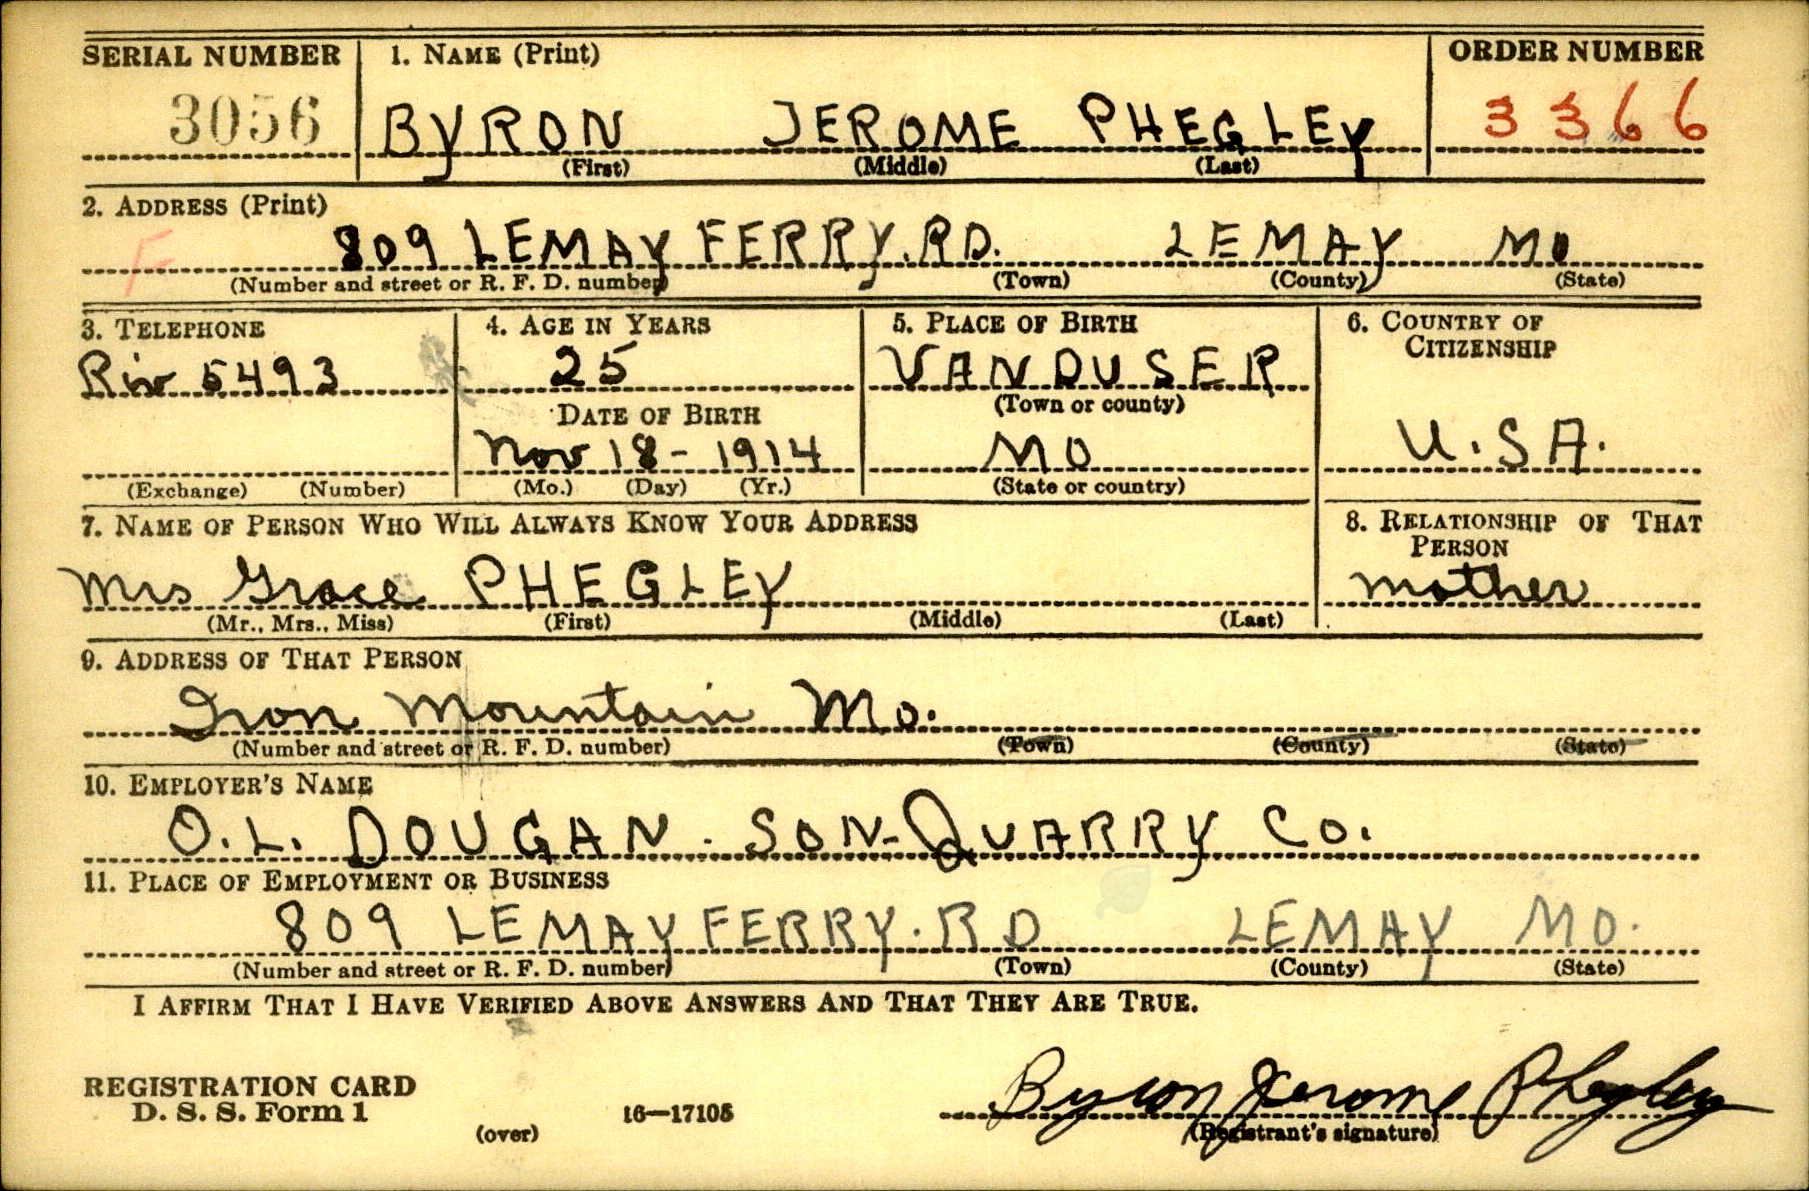 SERIAL NUMBER 1. NAME (Print) ORDER NUMBER
3056 BYRON JEROME PHEGLEY 3366
(First) (Middle) (Last)
2. ADDRESS (Print)
F 809 LEMAY FERRY. RD. LEMAY MO
(Number and street or R. F. D. number) (Town) (County) (State)
3. TELEPHONE 4. AGE IN YEARS 5. PLACE OF BIRTH 6. COUNTRY OF
CITIZENSHIP
Riv 5493 25 VANDUSER
(Town or county)
DATE OF BIRTH
Nov 18-1914 MO U.SA.
(Exchange) (Number) (Mo.) (Day) (Yr.) (State or country)
7. NAME OF PERSON WHO WILL ALWAYS KNOW YOUR ADDRESS 8. RELATIONSHIP OF THAT
PERSON
Mrs Grace PHEGLEY mother
(Mr., Mrs., Miss) (First) (Middle) (Last)
9. ADDRESS OF THAT PERSON
Iron Mountain Mo.
(Number and street or R. F. D. number) (Town) (County) (State)
10. EMPLOYER'S NAME
O.L. DOUGAN. SON-QUARRY CO.
11. PLACE OF EMPLOYMENT OR BUSINESS
809 LEMAY FERRY. RD LEMAY MO.
(Number and street or R. F. D. number) (Town) (County) (State)
I AFFIRM THAT I HAVE VERIFIED ABOVE ANSWERS AND THAT THEY ARE TRUE.
REGISTRATION CARD Byron Jerome Phegley
D. S. S. Form 1 16—17105
(over) (Registrant's signature)